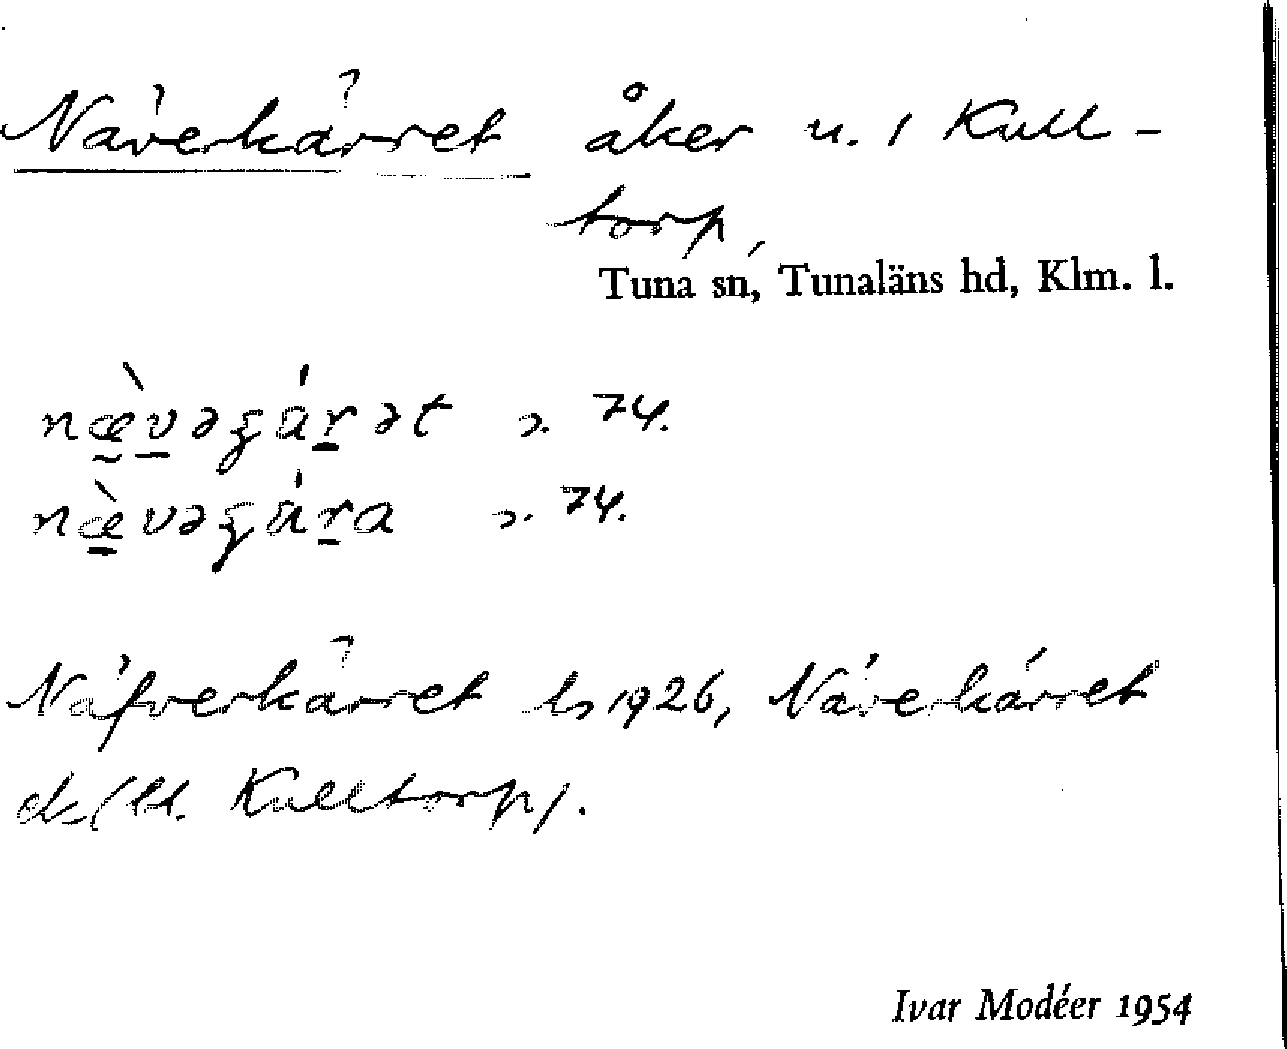 Näverkärret åker u. 1 Kull-
torp,
Tuna sn, Tunaläns hd, Klm. l.
74.
74.
Näfverkärret ls 1926, Näverkärret
dc (ll. Kulltorp).
Ivar Modéer 1954